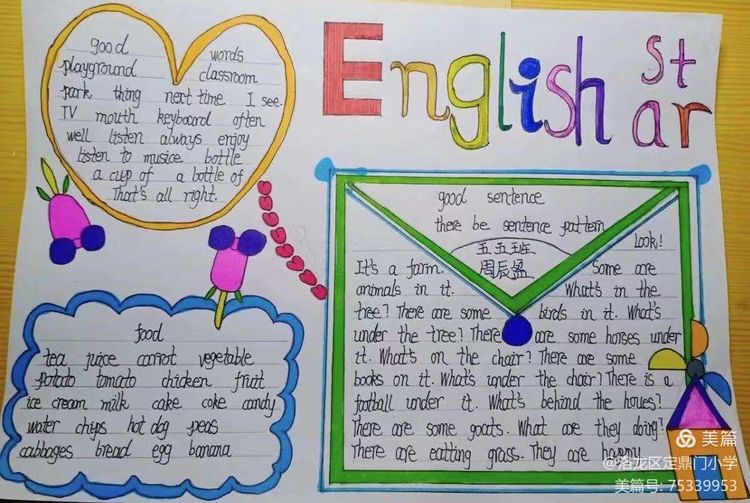 English
st
ar
good words
playground classroom
park thing next time I see.
TV mouth keyboard often
well listen always enjoy
listen to musice bottle
a cup of a bottle of
That's all right.
good sentence
there be sentence pattern
五五班
周辰
Look!
It's a farm. Some are
animals in it. What's in the
tree? There are some birds in it. What's
under the tree? There are some horses under
it. What's on the chair? There are some
books on it. What's under the chair? There is a
football under it. What's behind the houes?
There are some goats. What are they doing?
There are eatting grass. They are happy
food
tea juice carrot vegetable
potato tomato chicken fruit
ice cream milk cake coke candy
water chips hot dog peas
cabbages bread egg banana
美篇
@洛龙区定鼎门小学
美篇号: 75339953